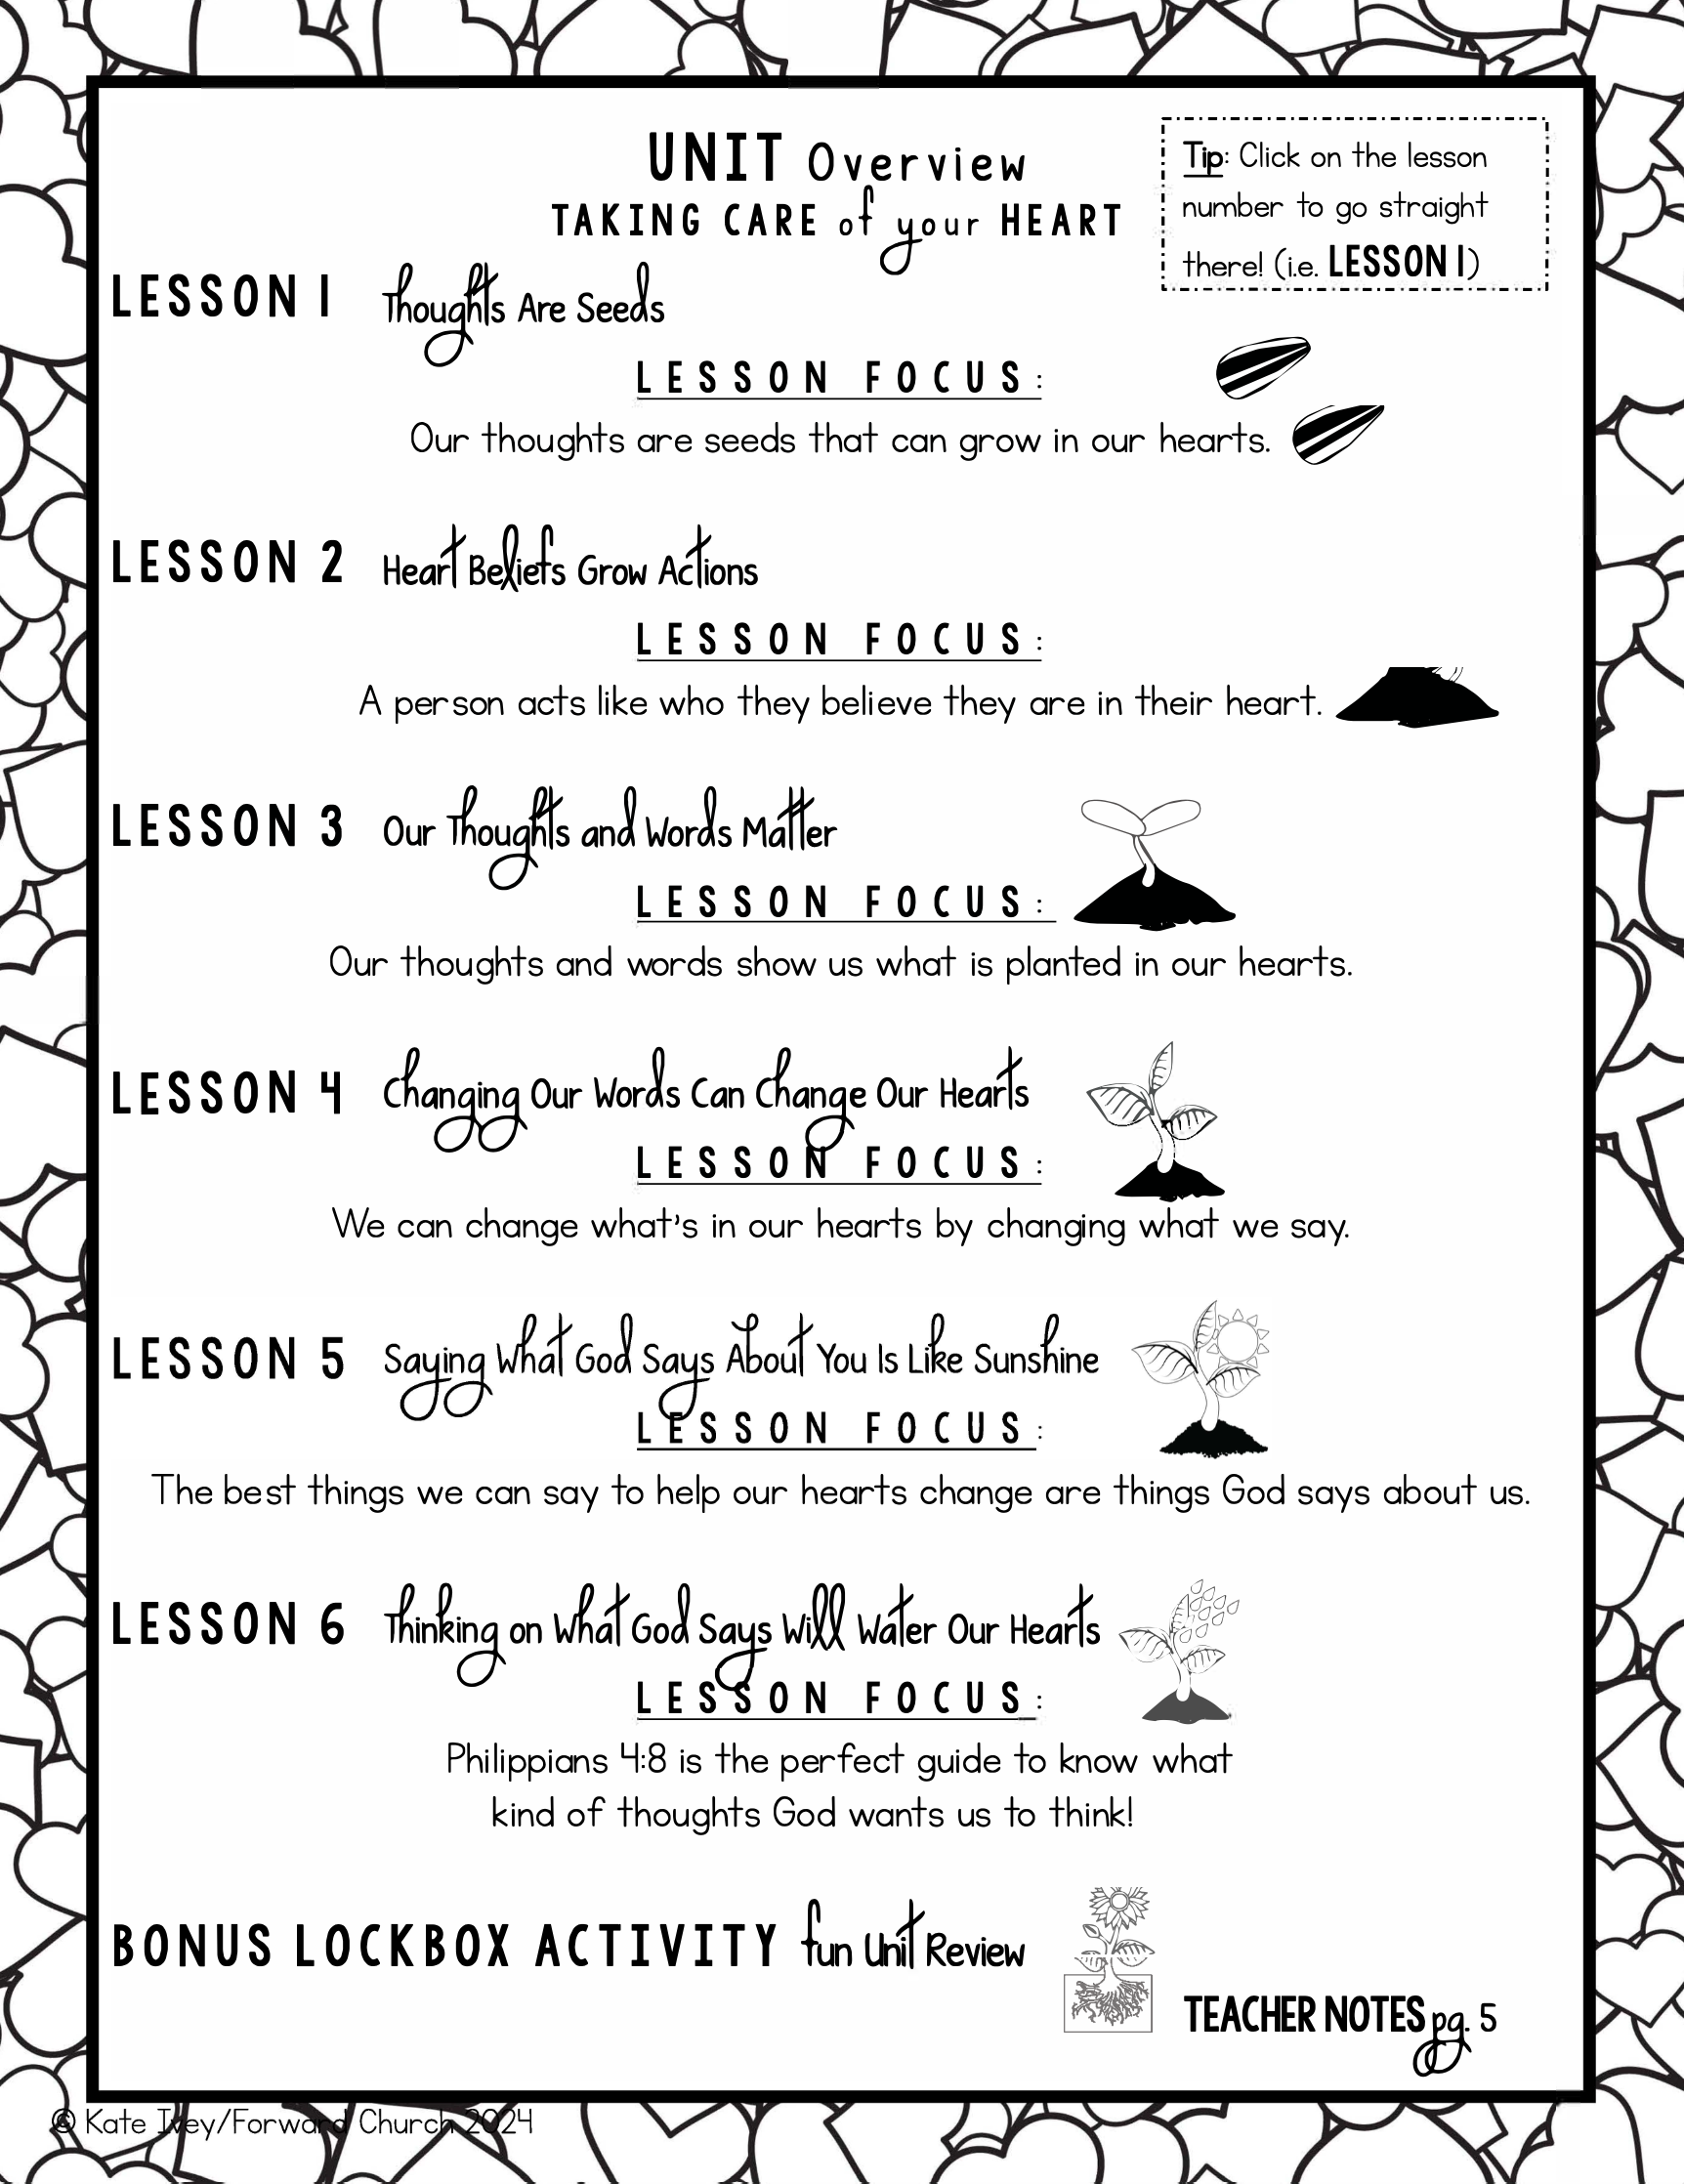 UNIT Overview
TAKING CARE of your HEART
Tip: Click on the lesson
number to go straight
there! (i.e. LESSON 1)
LESSON 1 Thoughts Are Seeds
LESSON FOCUS:
Our thoughts are seeds that can grow in our hearts.
LESSON 2 Heart Beliefs Grow Actions
LESSON FOCUS:
A person acts like who they believe they are in their heart.
LESSON 3 Our Thoughts and Words Matter
LESSON FOCUS:
Our thoughts and words show us what is planted in our hearts.
LESSON 4 Changing Our Words Can Change Our Hearts
LESSON FOCUS:
We can change what's in our hearts by changing what we say.
LESSON 5 Saying What God Says About You Is Like Sunshine
LESSON FOCUS:
The best things we can say to help our hearts change are things God says about us.
LESSON 6 Thinking on What God Says Will Water Our Hearts
LESSON FOCUS:
Philippians 4:8 is the perfect guide to know what
kind of thoughts God wants us to think!
BONUS LOCKBOX ACTIVITY fun Unit Review
TEACHER NOTES pg. 5
© Kate Ivey/Forward Church 2024